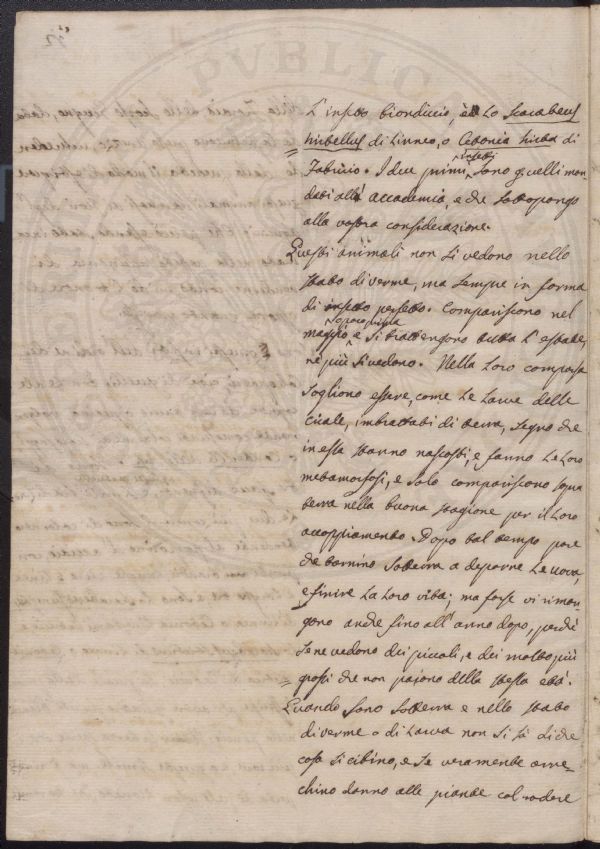 L'insetto biondiccio, è lo Scarabeus
hirtellus di Linneo, o Cetonia hirta di
Fabricio. I due primi insetti sono quelli man
dati all' accademia, e che sottopongo
alla vostra considerazione.
Questi animali non si vedono nello
stato di verme, ma sempre in forma
di insetto perfetto. Compariscono nel
maggio o poco prima e si trattengono tutta l'estate,
nè più si vedono. Nella loro comparsa
sogliono essere, come le larve delle
cicale, imbrattati di terra, segno che
in essa stanno nascosti, e fanno le loro
metamorfosi, e solo compariscono sopra
terra nella buona stagione per il loro
accoppiamento. Dopo tal tempo pare
che tornino sotterra a deporne le uova,
e finire la loro vita; ma forse vi riman-
gono anche fino all' anno dopo, perchè
se ne vedono dei piccoli, e dei molto più
grossi che non pajono della stessa età.
Quando sono sotterra e nello stato
di verme o di larva non si sà di che
cosa si cibino, e se veramente arre-
chino danno alle piante col rodere